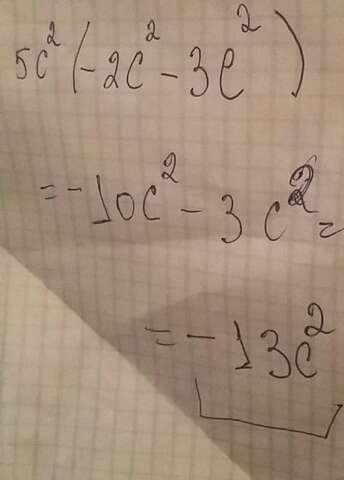 5c²(-2c²-3c²)
=-10c²-3c²=
=-13c²